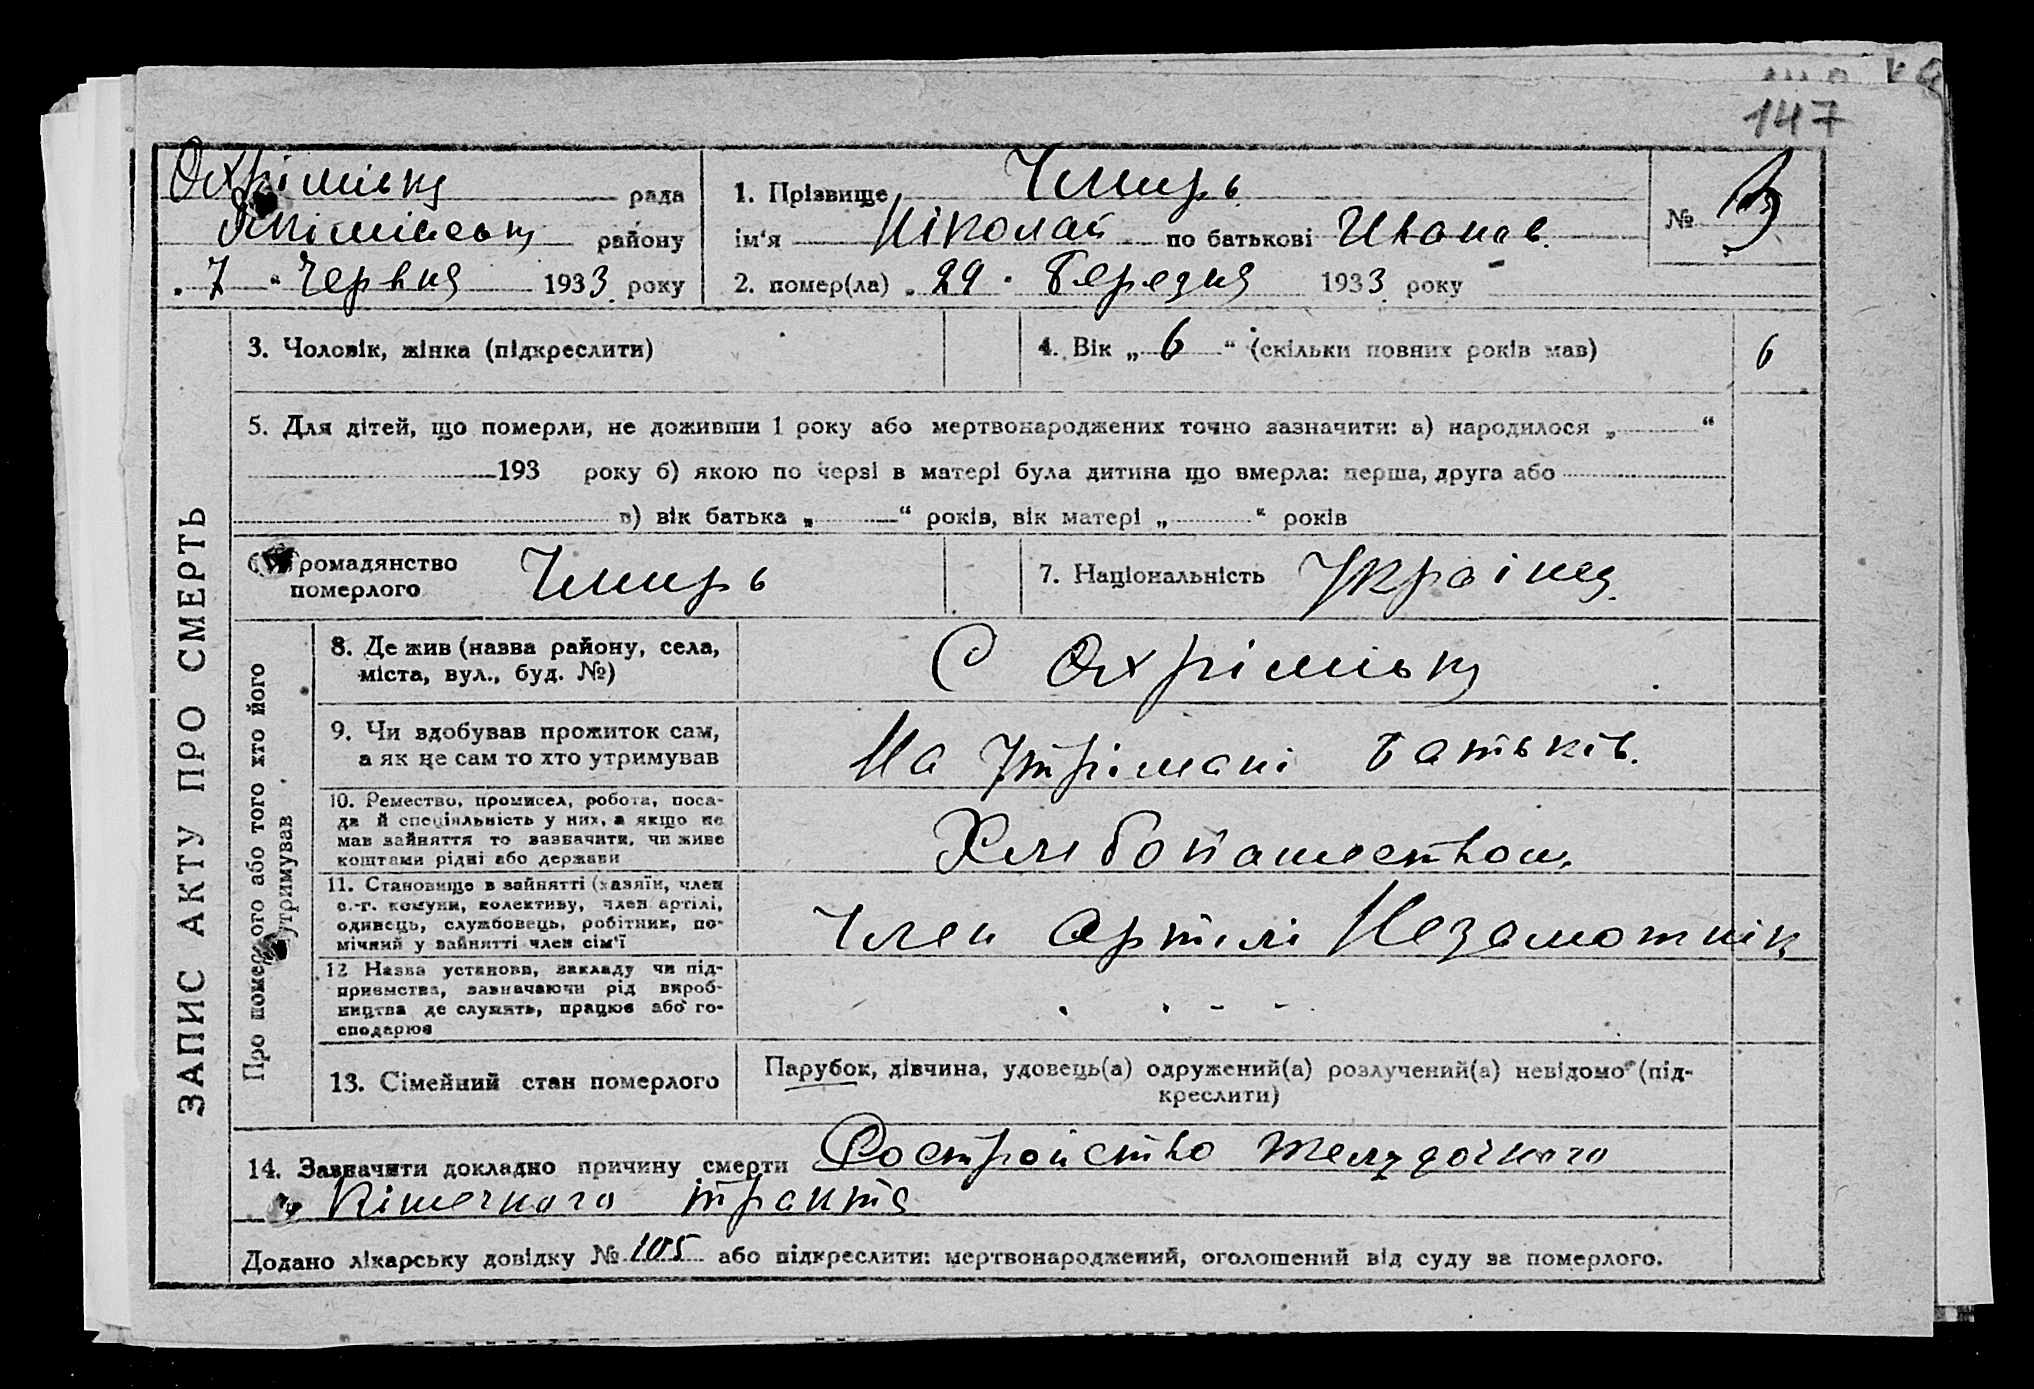 147
Охрімівку рада
Якімівську району
„ 7 “ Червня 1933 року
1. Прізвище Чмирь
№
ім'я Ніколай по батькові Иванов.
2. помер(ла) „ 29 “ Березня 1933 року
3. Чоловік, жінка (підкреслити)
4. Вік „ 6 “ (скільки повних років мав)
6
5. Для дітей, що померли, не доживши 1 року або мертвонароджених точно зазначити: а) народилося „ “
193 року б) якою по черзі в матері була дитина що вмерла: перша, друга або
в) вік батька „ “ років, вік матері „ “ років
ромадянство
померлого
Чмирь
7. Національність Україна
ЗАПИС АКТУ ПРО СМЕРТЬ
Про померлого або того хто його
утримував
8. Де жив (назва району, села,
міста, вул., буд. №)
С Охрімівку
9. Чи вдобував прожиток сам,
а як не сам то хто утримував
На утрімані батьків.
10. Ремество, промисел, робота, поса-
да й спеціяльність у них, а якщо не
мав зайняття то зазначити, чи живе
коштами рідні або держави
Хлебопашеством
11. Становище в зайнятті (хазяїн, член
с.-г. комуни, колективу, член артілі,
одинець, службовець, робітник, по-
мічний у зайнятті член сім'ї
Член Артілі Незаможнік
12 Назва установи, закладу чи під-
приємства, зазначаючи рід вироб-
ництва де служить, працює або го-
сподарює
13. Сімейний стан померлого
Парубок, дівчина, удовець(а) одружений(а) розлучений(а) невідомо (під-
креслити)
14. Зазначити докладно причину смерти Розстройство желудочного
Кішечного тракта
Додано лікарську довідку № 105 або підкреслити: мертвонароджений, оголошений від суду за померлого.